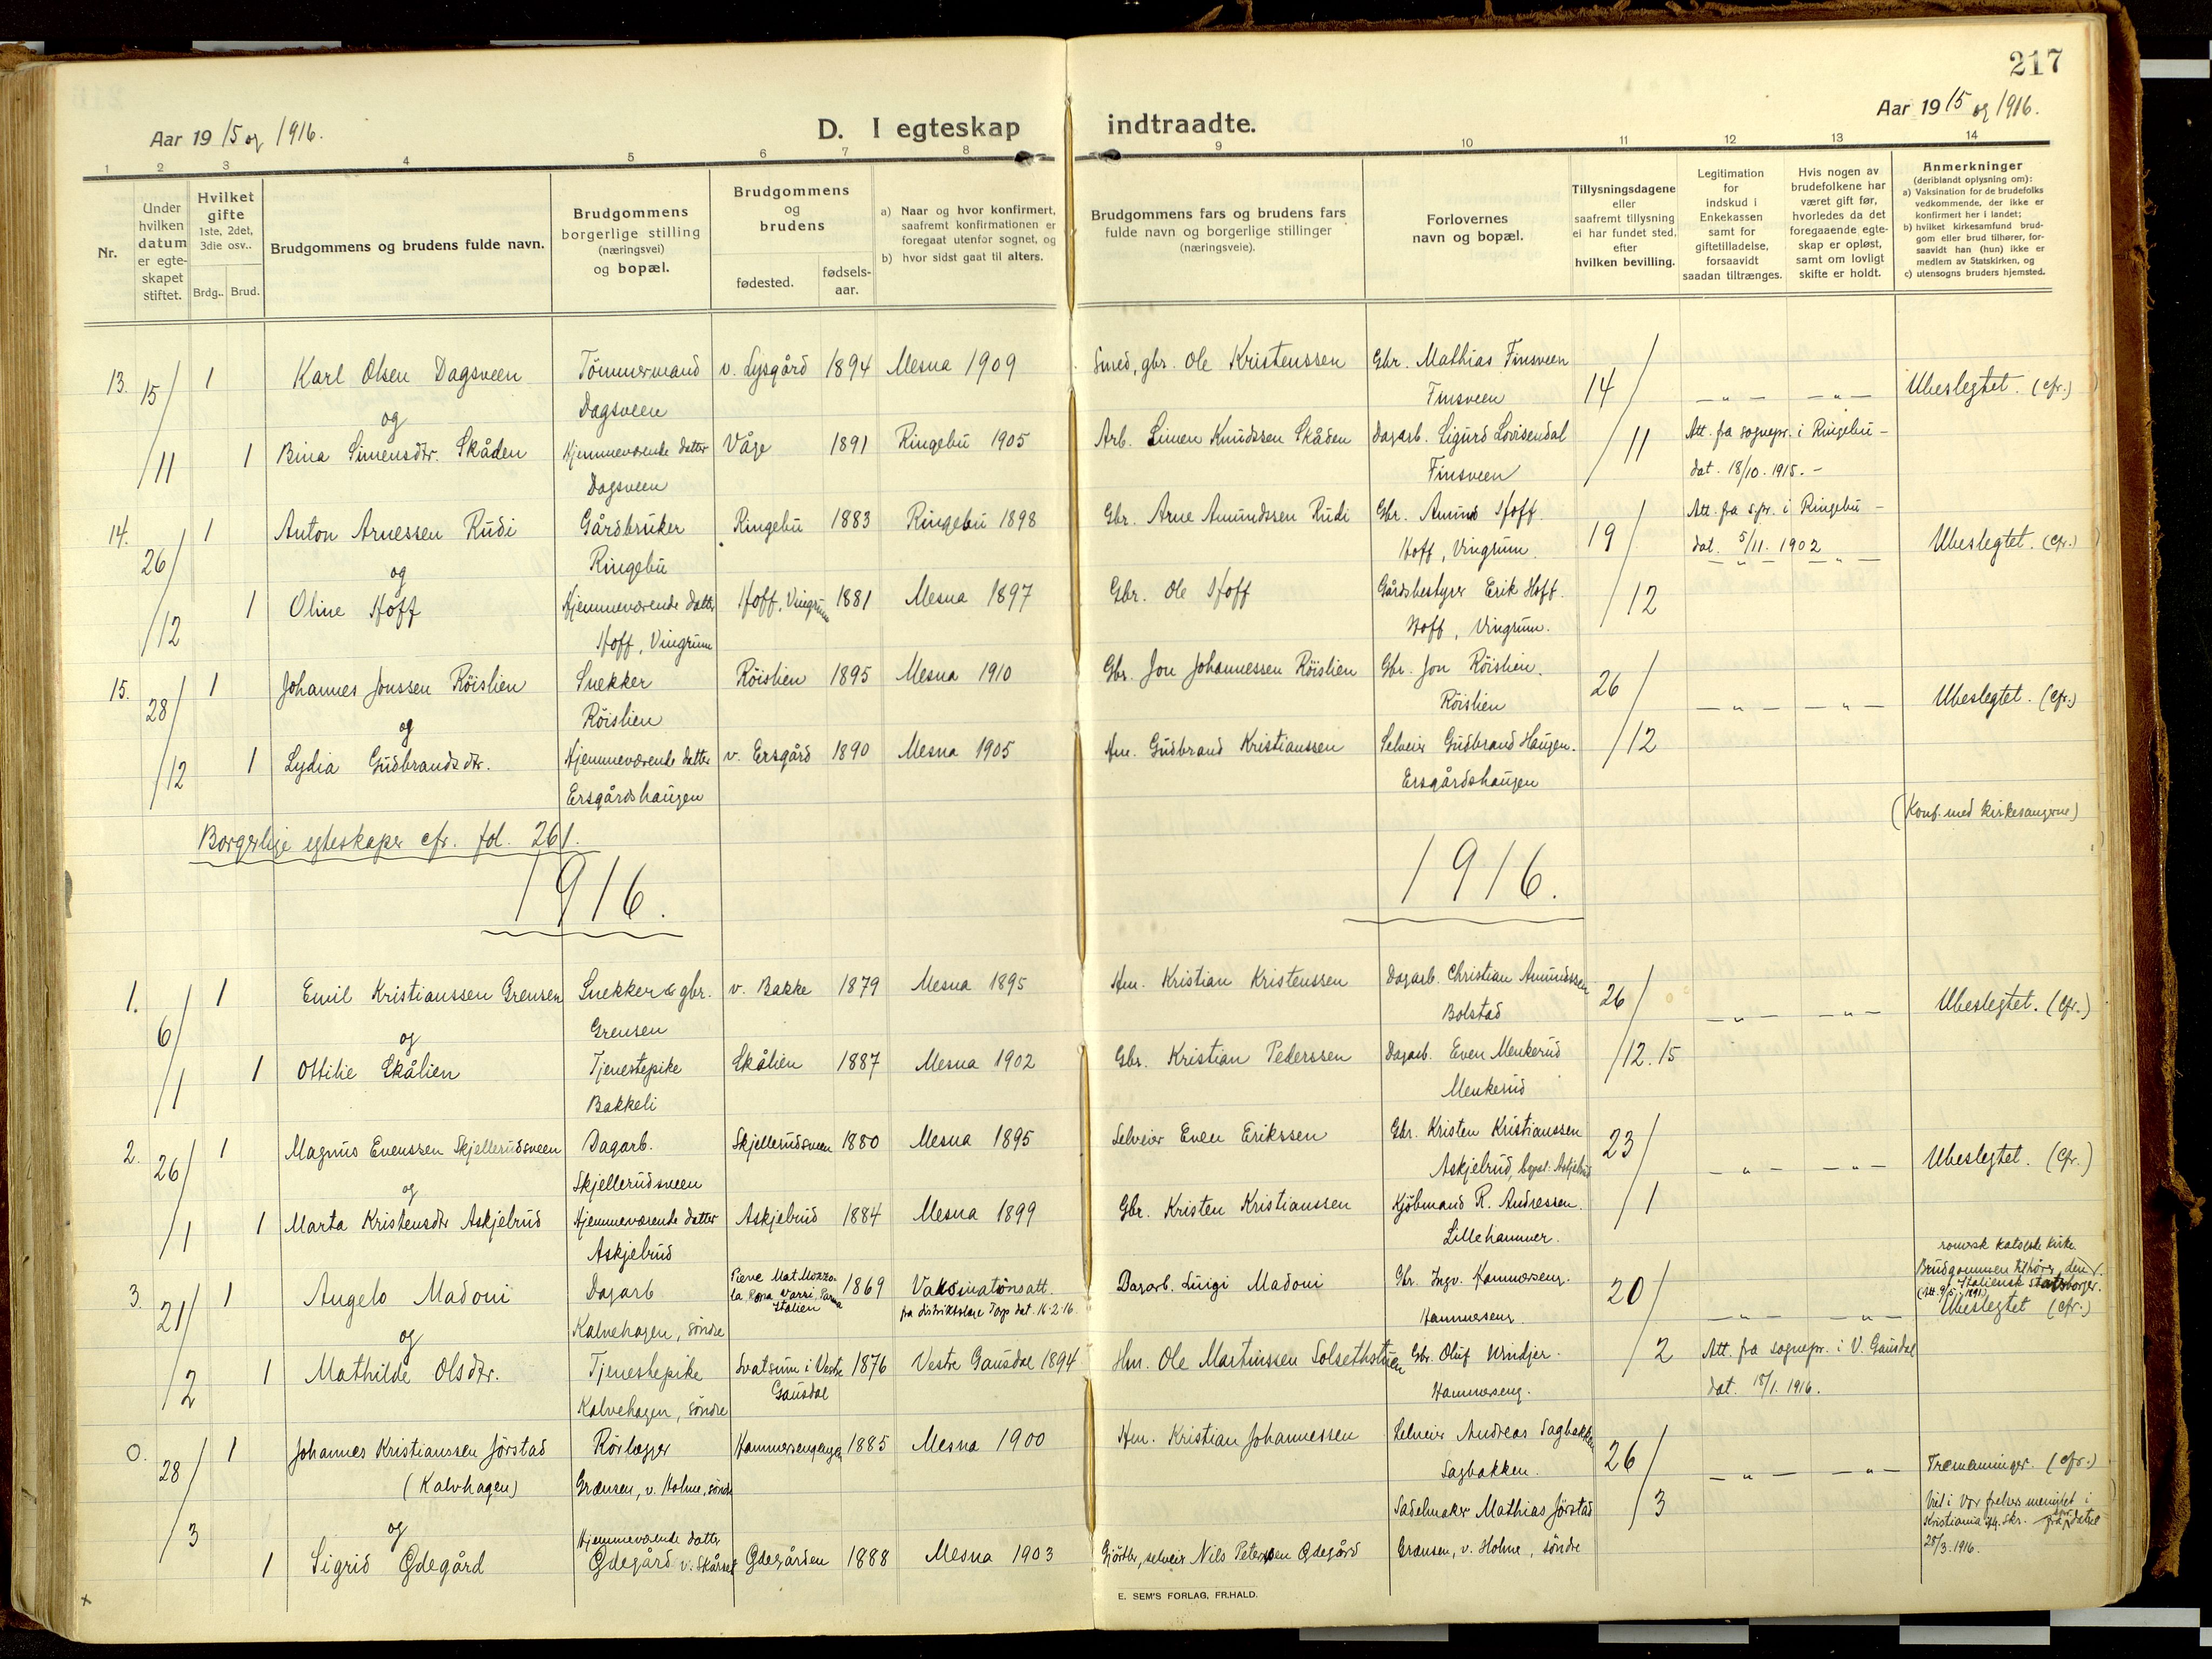 217
Aar 1915 og 1916.
D. I egteskap indtraadte.
Aar 1915 og 1916.
1 2 3 4 5 6 7 8 9 10 11 12 13 14
Nr.
Under hvilken datum er egteskapet stiftet.
Hvilket gifte 1ste, 2det, 3die osv..
Brdg.. Brud.
Brudgommens og brudens fulde navn.
Brudgommens borgerlige stilling (næringsvei) og bopæl.
Brudgommens og brudens
fødested.
fødsels-aar.
a) Naar og hvor konfirmert, saafremt konfirmationen er foregaat utenfor sognet, og
b) hvor sidst gaat til alters.
Brudgommens fars og brudens fars fulde navn og borgerlige stillinger (næringsveie).
Forlovernes navn og bopæl.
Tillysningsdagene eller saafremt tillysning ei har fundet sted, efter hvilken bevilling.
Legitimation for indskud i Enkekassen samt for giftetilladelse, forsaavidt saadan tiltrænges.
Hvis nogen av brudefolkene har været gift før, hvorledes da det foregaaende egteskap er opløst, samt om lovligt skifte er holdt.
Anmerkninger (deriblandt oplysning om):
a) Vaksination for de brudefolks vedkommende, der ikke er konfirmert her i landet;
b) hvilket kirkesamfund brudgom eller brud tilhører, forsaavidt han (hun) ikke er medlem av Statskirken, og
c) utensogns bruders hjemsted.
13. 15/11 1 Karl Olsen Dagsveen Tömmermand Dagsveen v. Lysgård 1894 Mesna 1909 Smed, gbr. Ole Kristenssen Gbr. Mathias Finsveen Finsveen 14/11 — " — — " — Ubeslegtet. (cfr.)
og
1 Bina Simensdtr. Skåden Hjemmeværende datter Dagsveen Våge 1891 Ringebu 1905 Arb. Simen Knudssen Skåden Dagarb. Sigurd Lovisendal Finsveen Att. fra sognepr. i Ringebu - dat. 18/10. 1915. -
14. 26/12 1 Anton Arnessen Rudi Gårdbruker Ringebu Ringebu 1883 Ringebu 1898 Gbr. Arne Amundssen Rudi Gbr. Amund Hoff. Hoff, Vingrum. 19/12 Att. fra spr. i Ringebu - dat. 5/11. 1902 — " — — " — Ubeslegtet. (cfr.)
og
1 Oline Hoff Hjemmeværende datter Hoff, Vingrum Hoff, Vingrum 1881 Mesna 1897 Gbr. Ole Hoff Gårdsbestyrer Erik Hoff. Hoff, Vingrum.
15. 28/12 1 Johannes Jonssen Röislien Snekker Röislien Röislien 1895 Mesna 1910 Gbr. Jon Johannessen Röislien Gbr. Jon Röislien. Röislien 26/12 — " — — " — Ubeslegtet. (cfr.)
og
1 Lydia Gudbrandsdtr. Hjemmeværende datter Ersgårdshaugen v. Ersgård 1890 Mesna 1905 Hm. Gudbrand Kristianssen Selveier Gudbrand Haugen. Ersgårdshaugen
(Konf. med kirkesangerne)
Borgerlige egteskaper cfr. fol. 261.
1916. 1916.
1. 6/1 1 Emil Kristianssen Grensen Snekker & gbr. Grensen v. Bakke 1879 Mesna 1895 Hm. Kristian Kristenssen Dagarb. Christian Amundssen Bolstad 26/12.15 — " — — " — Ubeslegtet. (cfr.)
og
1 Ottilie Skålien Tjenestepike Bakkeli Skålien 1887 Mesna 1902 Gbr. Kristian Pederssen Dagarb. Even Menkerud Menkerud
2. 26/1 1 Magnus Evenssen Skjellerudsveen Dagarb. Skjellerudsveen Skjellerudsveen 1880 Mesna 1895 Selveier Even Erikssen Gbr. Kristen Kristianssen Askjelrud, bopæl: Askjelrud 23/1 — " — — " — Ubeslegtet. (cfr.)
og
1 Marta Kristensdtr Askjelrud Hjemmeværende datter Askjelrud Askjelrud 1884 Mesna 1899 Gbr. Kristen Kristianssen Kjöbmand R. Andressen. Lillehammer.
3. 21/2 1 Angelo Madoni Dagarb Kalvehagen, söndre Italien 1869 Vaksinationsatt. fra distriktslæge Torp dat. 16-2-16. Dagarb. Luigi Madoni Gbr. Ingv. Hammerseng. Hammerseng. 20/2 — " — — " — romersk katolske kirke. Brudgommen tilhører den Italiensk statsborger. Ubeslegtet (cfr.)
og
1 Mathilde Olsdtr. Tjenestepike Kalvehagen, söndre Svatsum i Vestre Gausdal 1876 Vestre Gausdal 1894 Hm. Ole Martinssen Solsethstuen Gbr. Oluf Windjer. Hammerseng. Att. fra sognepr. i V. Gausdal dat. 18/1. 1916.
0. 28/3 1 Johannes Kristianssen Jörstad (Kalvhagen) Rörlægger Grænsen, v. Holme, söndre Hammersengengen 1885 Mesna 1900 Hm. Kristian Johannessen Selveier Andreas Sagbakken Sagbakken. 26/3 — " — — " — Tremenninger. (cfr.)
og
1 Sigrid Ödegård Hjemmeværende datter Ödegård v. Skårset Ödegården 1888 Mesna 1903 Gjörtler, selveier Nils Peterssen Ödegård Sadelmaker Mathias Jörstad Grænsen, v. Holme, söndre Viet i Vor frelsers menighet i Kristiania iflg. skr. datert 28/3. 1916.
x
E. SEM'S FORLAG, FR.HALD.